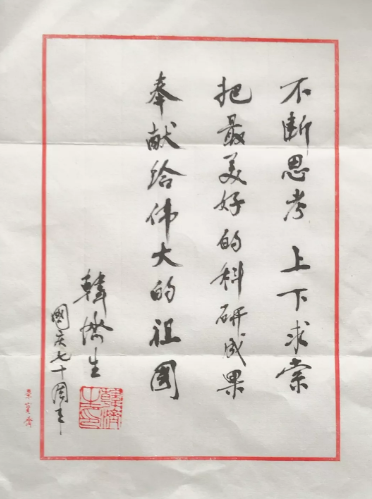 不断思考 上下求索
把最美好的科研成果
奉献给伟大的祖國
韓濟生
國庆七十周年